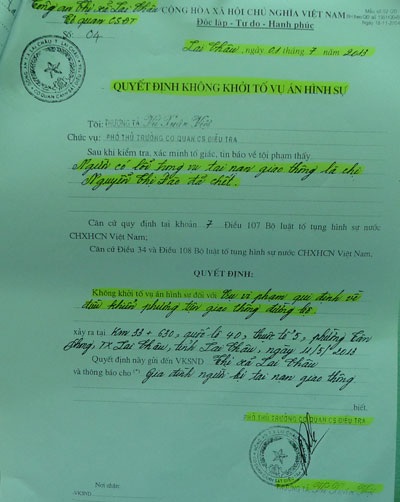 Công an Thị xã Lai Châu CỘNG HÒA XÃ HỘI CHỦ NGHĨA VIỆT NAM
Cơ quan CSĐT Độc lập - Tự do - Hạnh phúc
Số: 04
Lai Châu, ngày 01 tháng 7 năm 2013
QUYẾT ĐỊNH KHÔNG KHỞI TỐ VỤ ÁN HÌNH SỰ
Tôi: THƯỢNG TÁ
Chức vụ: PHÓ THỦ TRƯỞNG CƠ QUAN CS ĐIỀU TRA
Sau khi kiểm tra, xác minh tố giác, tin báo về tội phạm thấy
Người có lỗi trong vụ tai nạn giao thông là chị
Nguyễn Thị đã chết.
Căn cứ quy định tại khoản 7 Điều 107 Bộ luật tố tụng hình sự nước
CHXHCN Việt Nam;
Căn cứ Điều 34 và Điều 108 Bộ luật tố tụng hình sự nước CHXHCN Việt Nam,
QUYẾT ĐỊNH:
Không khởi tố vụ án hình sự đối với Vụ vi phạm qui định về
điều khiển phương tiện giao thông đường bộ
xảy ra tại Km 33 + 630, quốc lộ 4D, thuộc tổ 3, phường Tân
Phong, TX Lai Châu, tỉnh Lai Châu, ngày 11/5/2013
Quyết định này gửi đến VKSND Thị xã Lai Châu
và thông báo cho (*) Gia đình người bị tai nạn giao thông
biết.
PHÓ THỦ TRƯỞNG CƠ QUAN CS ĐIỀU TRA
Nơi nhận: